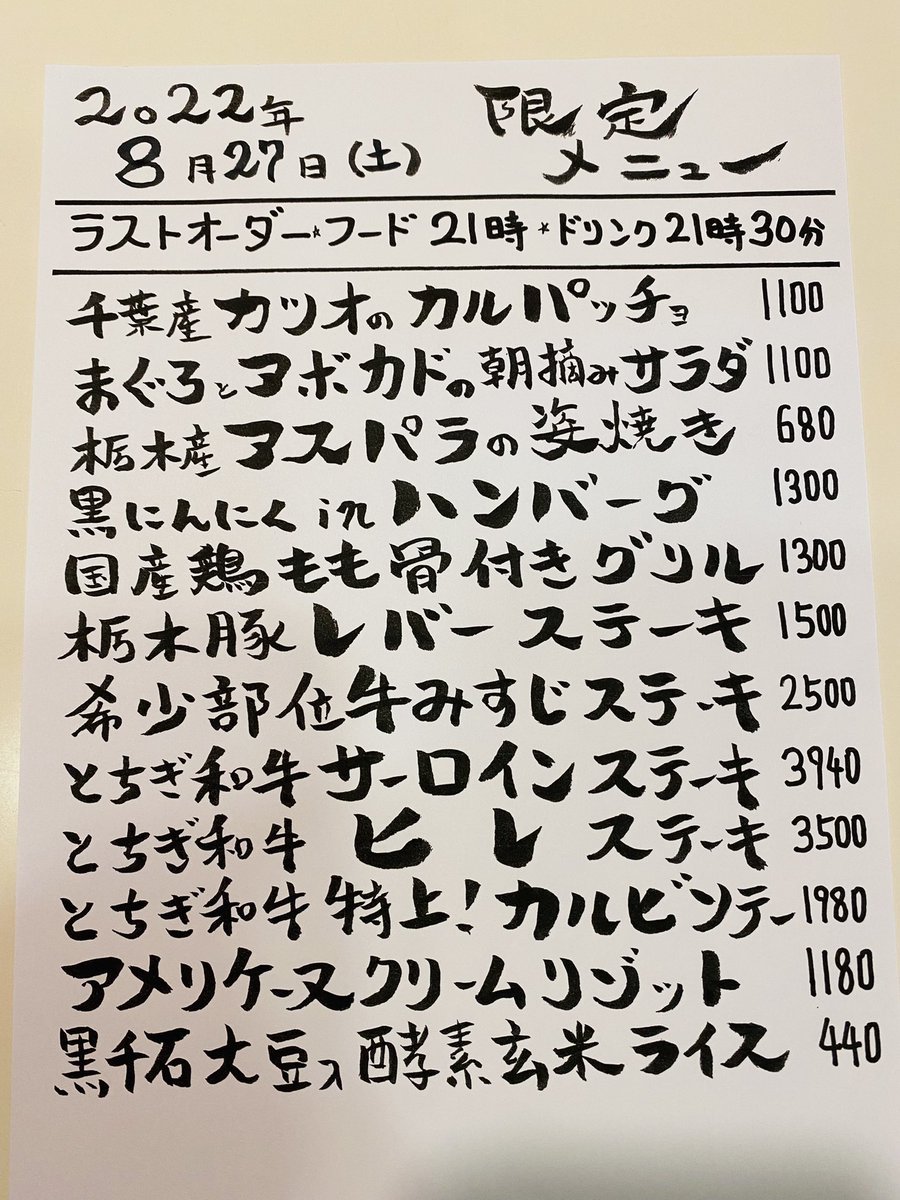 2022年 限定
8月27日(土) メニュー
ラストオーダー☆フード 21時 ☆ドリンク21時30分
千葉産 カツオのカルパッチョ 1100
まぐろとアボカドの朝摘みサラダ 1100
栃木産 アスパラの姿焼き 680
黒にんにくinハンバーグ 1300
国産鶏もも骨付きグリル 1300
栃木豚レバーステーキ 1500
希少部位牛みすじステーキ 2500
とちぎ和牛サーロインステーキ 3940
とちぎ和牛ヒレステーキ 3500
とちぎ和牛特上!カルビソテー 1980
アメリケーヌクリームリゾット 1180
黒千石大豆入酵素玄米ライス 440